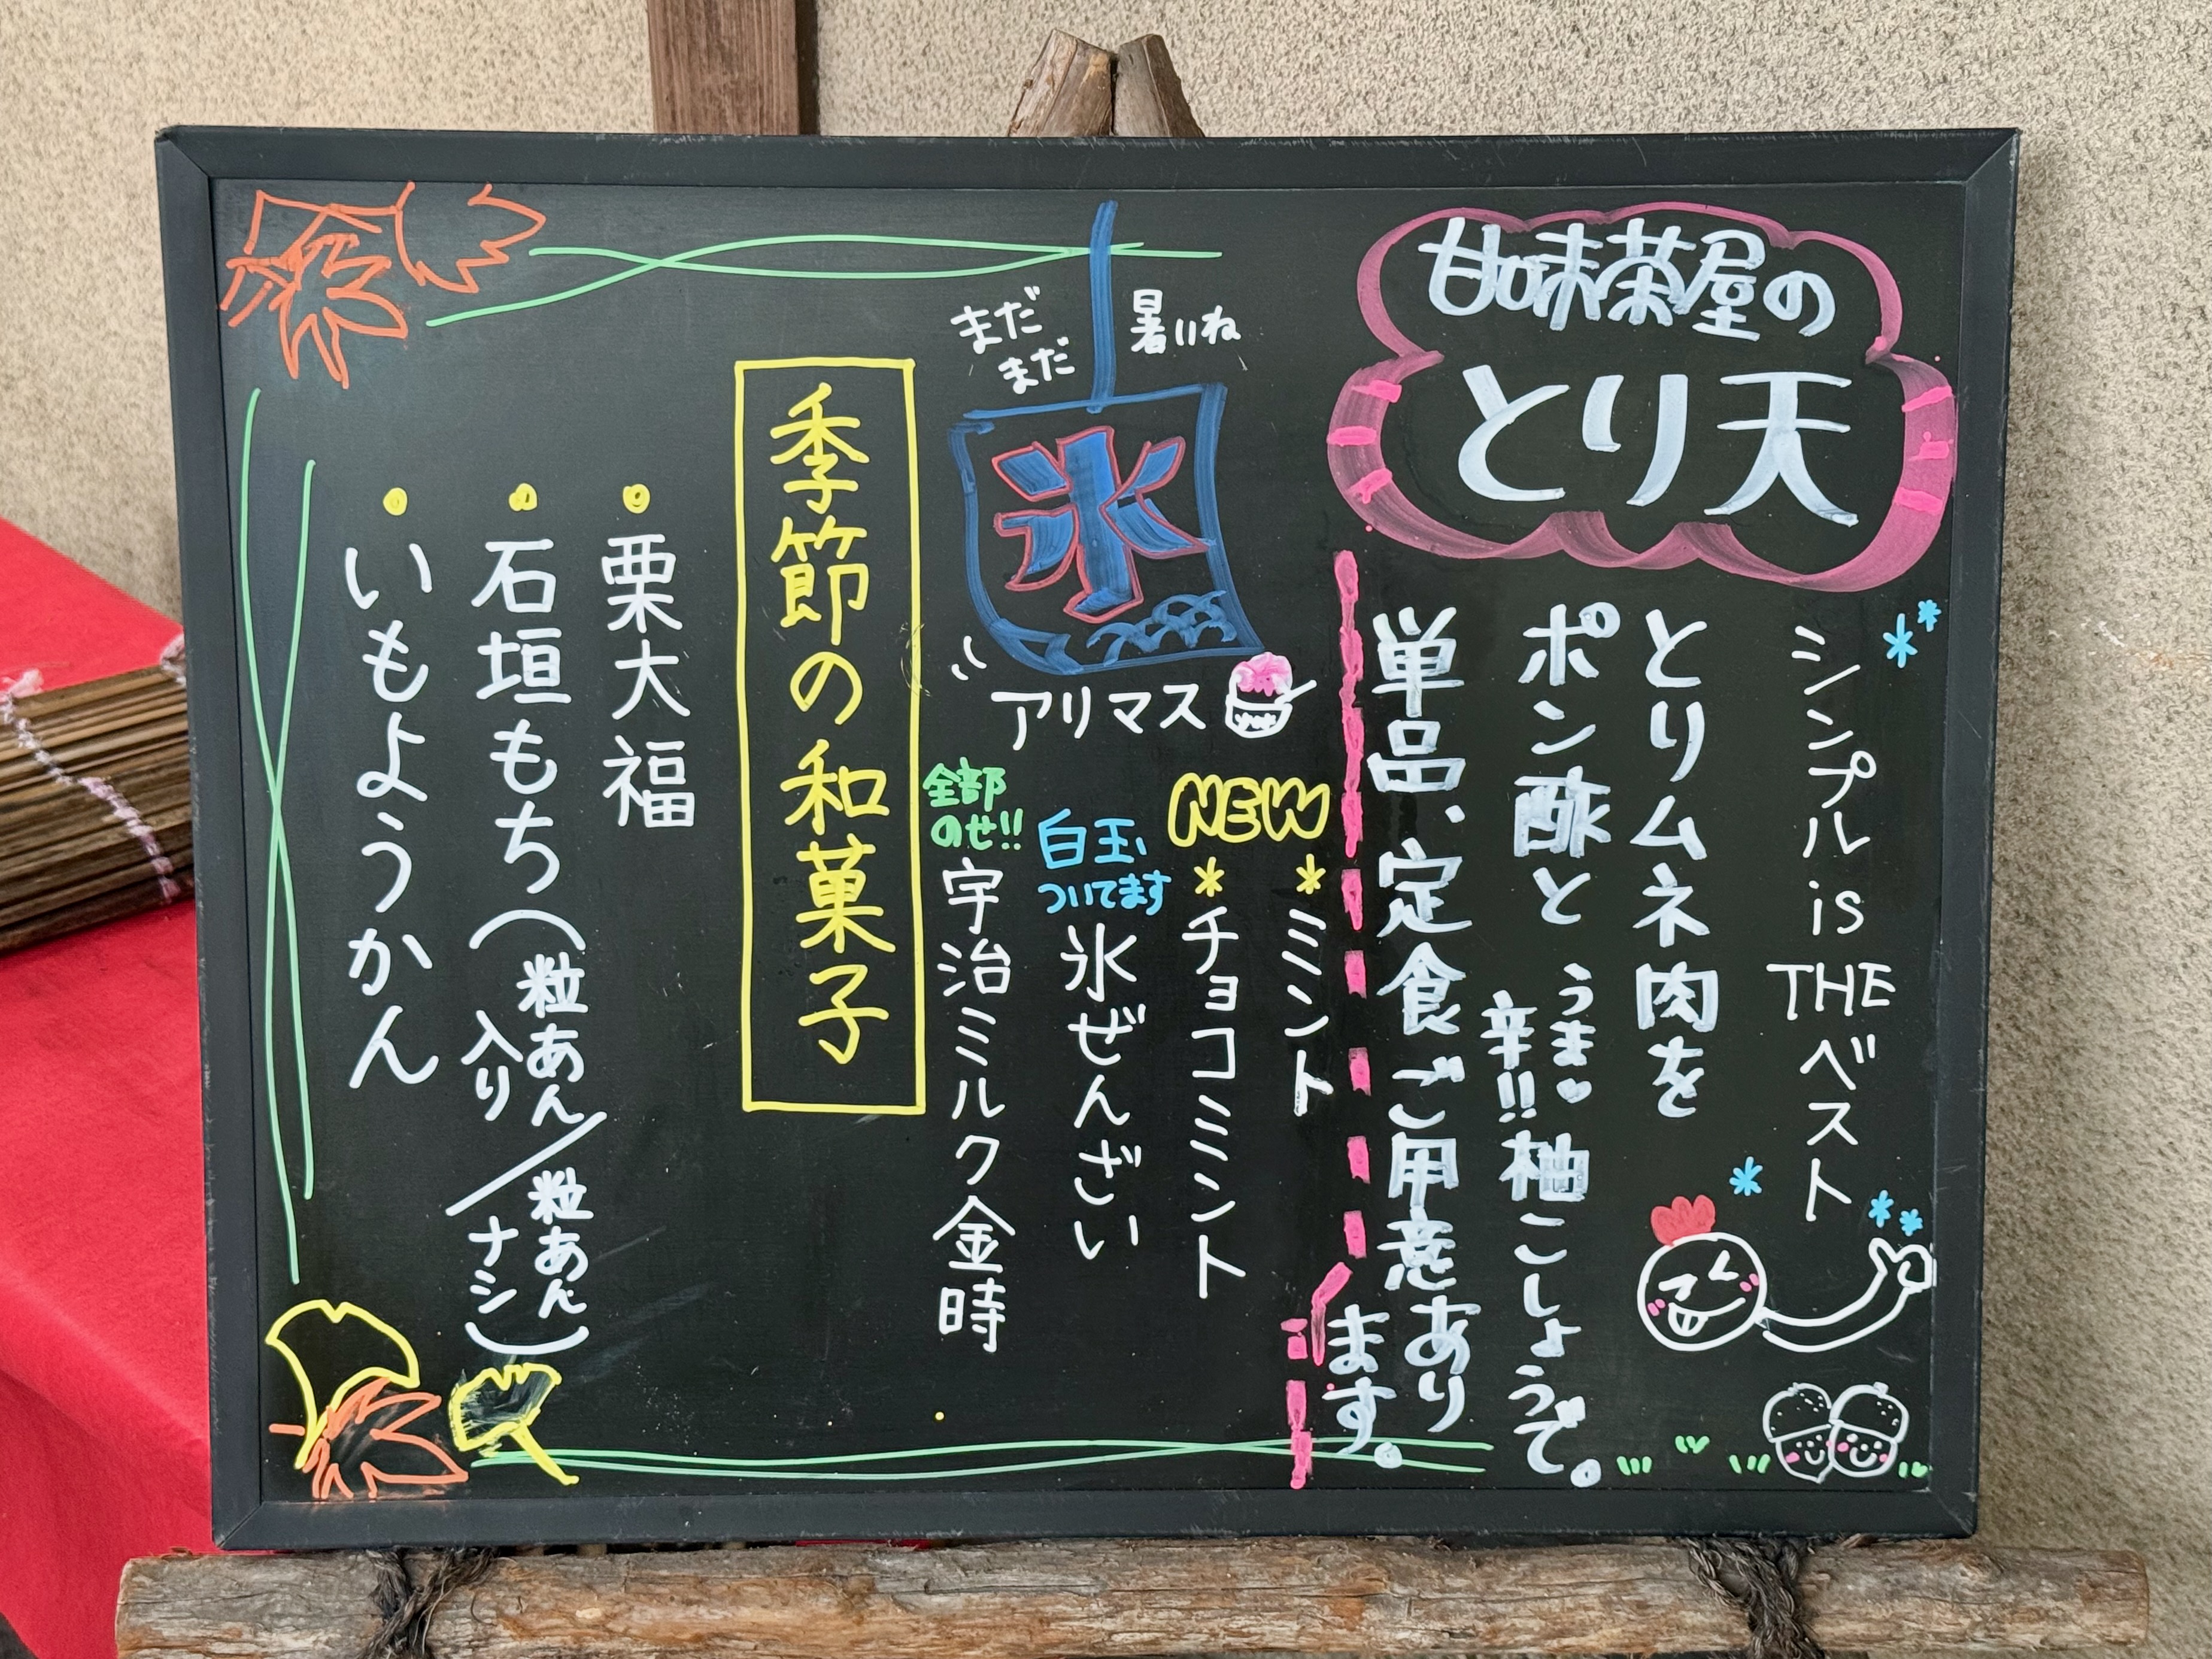 甘味茶屋の
とり天
シンプル is THE ベスト
とりムネ肉を
ポン酢と
うま♥
辛!!
柚こしょうで。
単品、定食ご用意あり
ます。
まだ
まだ
暑いね
氷
アリマス
NEW
*ミント
*チョコミント
白玉、
ついてます
氷ぜんざい
全部
のせ!!
宇治ミルク金時
季節の和菓子
・栗大福
・石垣もち(粒あん入り/粒あんナシ)
・いもようかん